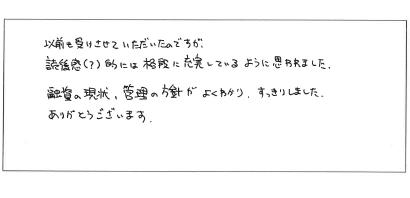 以前も受けさせていただいたのですが、
読後感(?)的には格段に充実しているように思われました。
融資の現状、管理の方針がよくわかり、すっきりしました。
ありがとうございます。